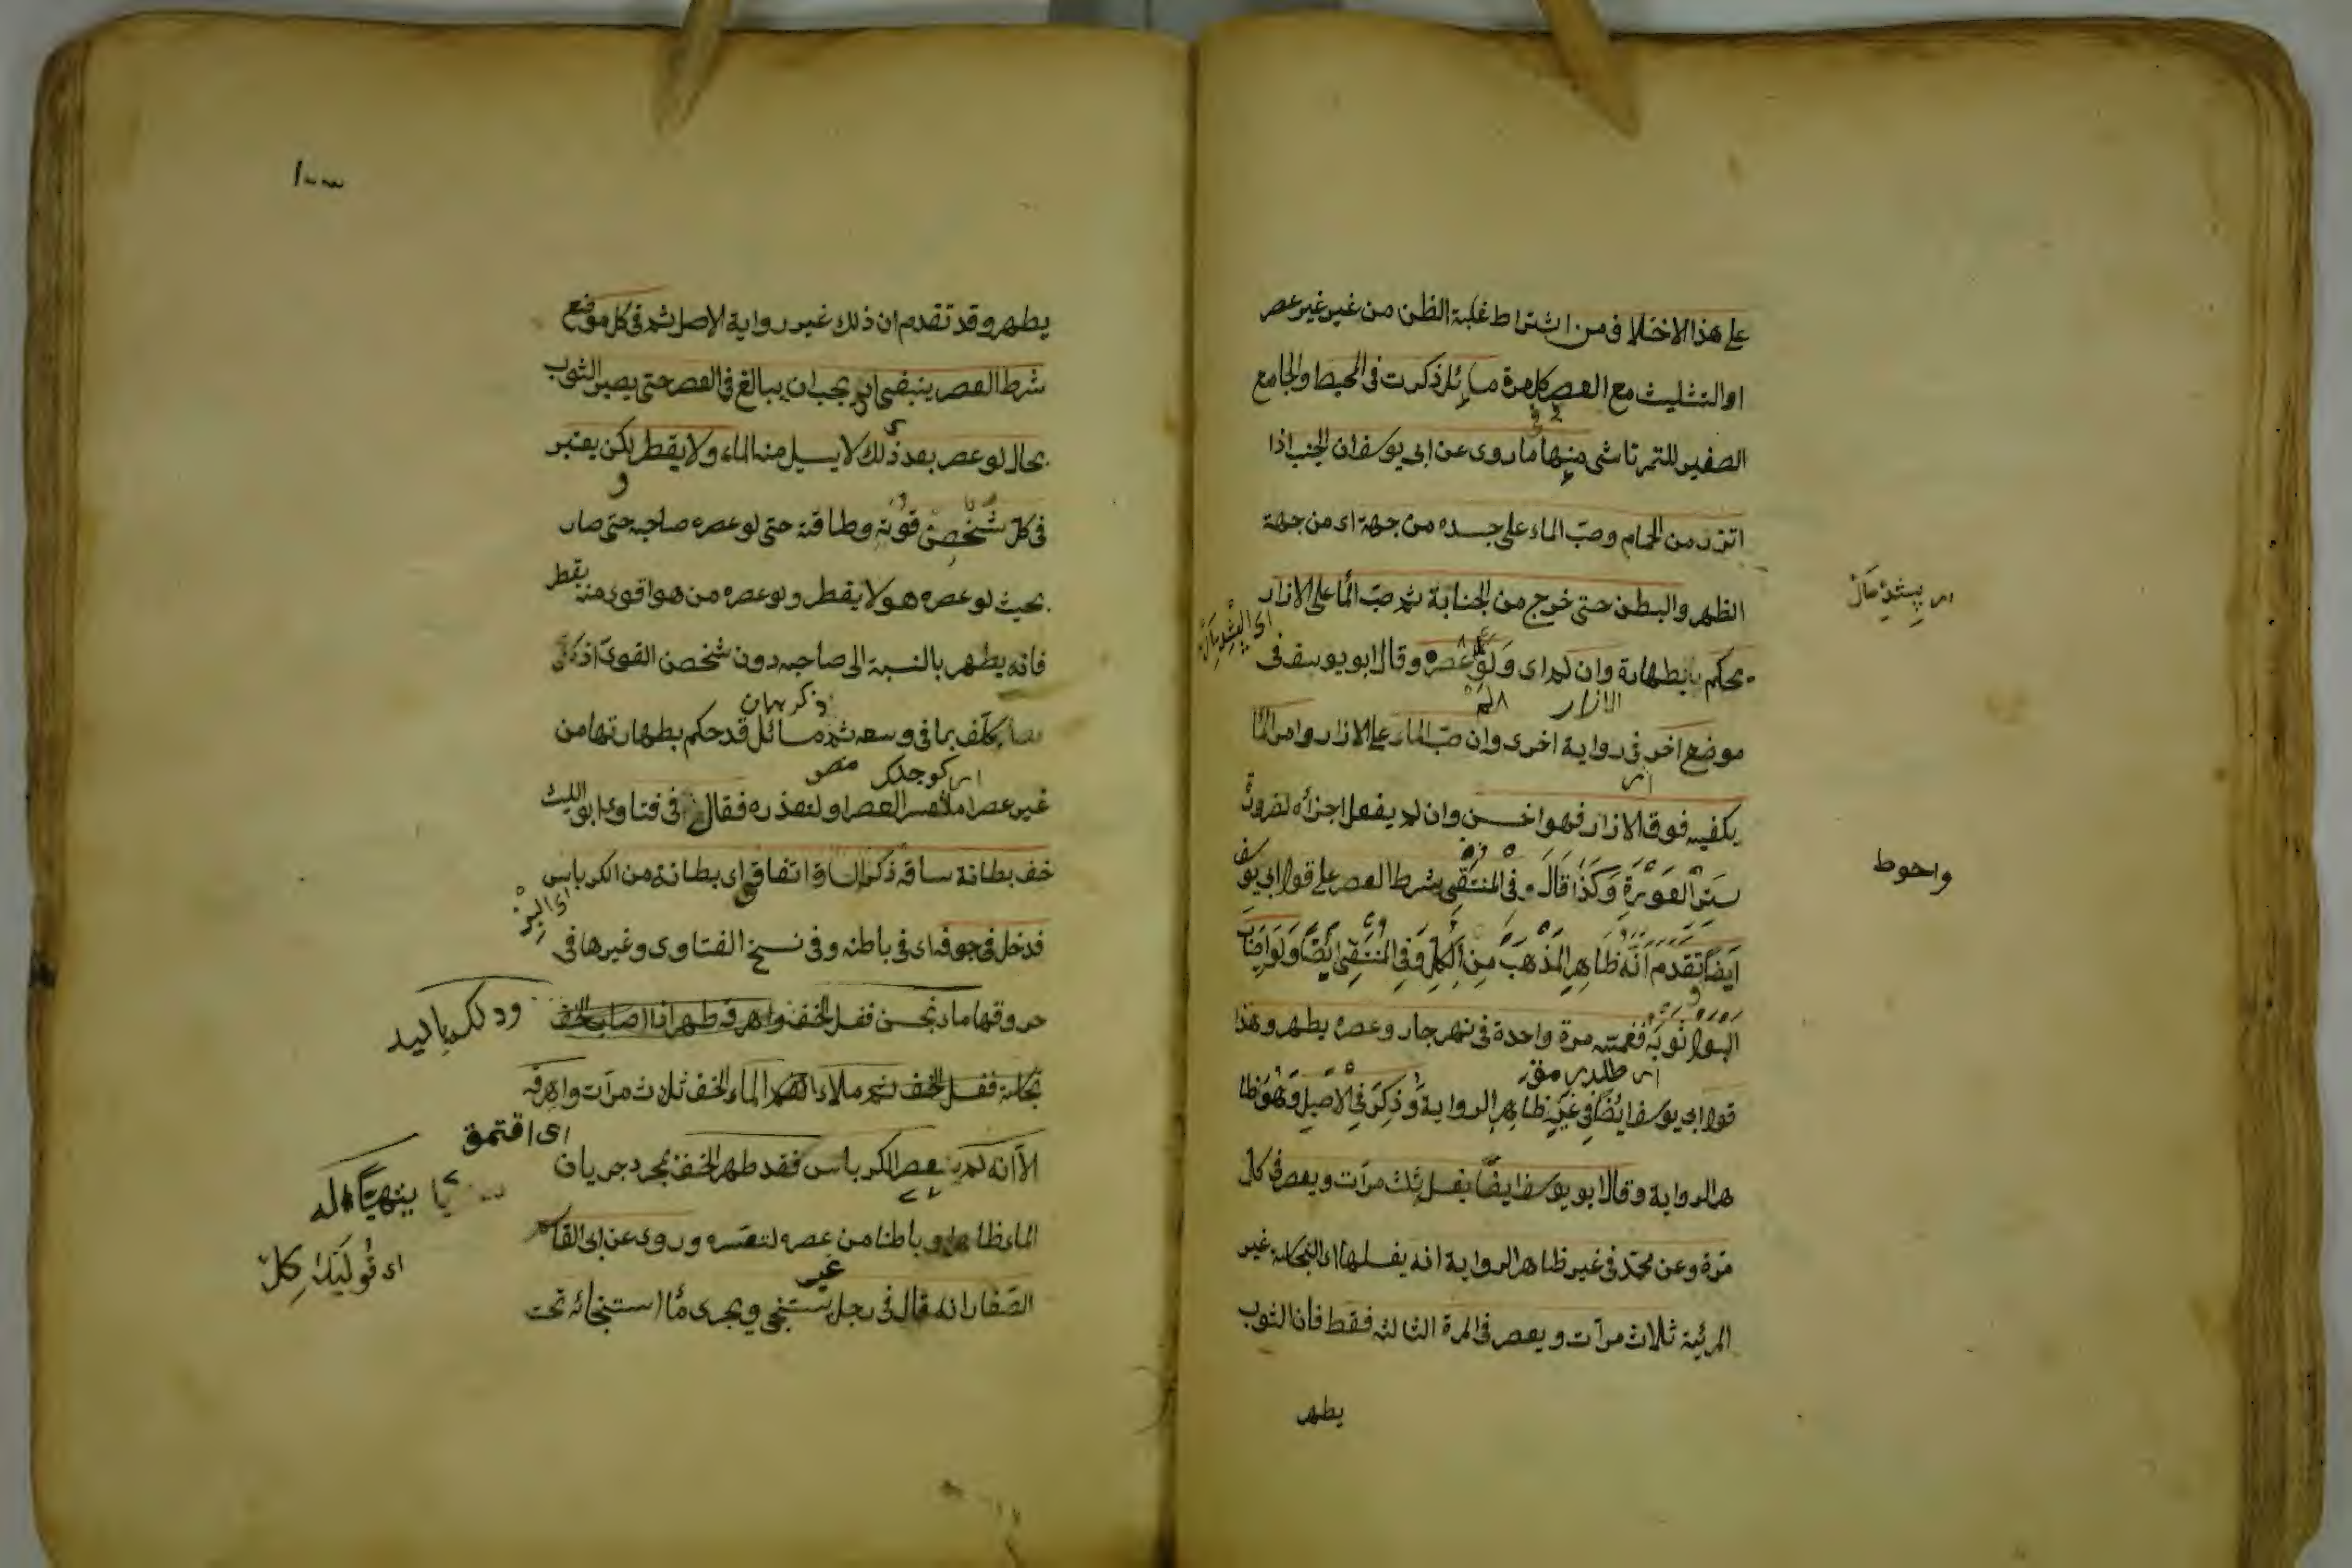 على هذا الاختلاف من اشتراط غلبة الظن من غير غير عصر
او التثليث مع العصر كل مرة مسائل ذكرت فى المحيط والجامع
الصغير للتمرتاشى منها ما روى عن ابى يوسف ان الجنب اذا
اتزر من الحمام وصب الماء على جسده من جهة اى من جهة
الظهر والبطن حتى خرج من الجنابة ثم صب الماء على الازار
يحكم بطهارة وان لم اى ولو عصره وقال ابو يوسف فى
الازار
موضع اخر فى رواية اخرى وان صب الماء على الازار وامر الماء
بكفيه فوق الازار فهو احسن وان لم يفعل اجزأه لضرورة
واحوط
ستر العورة وكذا قال وفى المنتقى شرط العصر على قول ابى يوسف
ايضا تقدم انه ظاهر المذهب من الكل وفى المنتقى ايضا ولو اصاب
البول ثوبه فغمسه مرة واحدة فى نهر جار وعصره يطهر وهذا
قول ابى يوسف ايضا فى غير ظاهر الرواية وذكر فى الاصل وهو ظا
هر الرواية وقال ابو يوسف ايضا يغسل ثلث مرات ويعصر فى كل
مرة وعن محمد فى غير ظاهر الرواية انه يغسلها اى النجاسة غير
المرئية ثلاث مرات ويعصر فى المرة الثالثة فقط فان الثوب
يطهر
يطهر وقد تقدم ان ذلك غير رواية الاصل ثم فى كل موضع
شرط العصر ينبغى اى يجب ان يبالغ فى العصر حتى يصير الثوب
بحال لو عصر بعد ذلك لا يسيل منه الماء ولا يقطر لكن يعتبر
فى كل شخص قوته وطاقته حتى لو عصره صاحبه حتى صار
بحيث لو عصره هو لا يقطر ولو عصره من هو اقوى منه يقطر
فانه يطهر بالنسبة الى صاحبه دون شخص القوى اذ كل
يكلف بما فى وسعه ثم مسائل قد حكم بطهارتها من
غير عصر اما لتعسر العصر او لتعذره فقال فى فتاوى ابو الليث
خف بطانة ساقه ذكر الساق اتفاقى اى بطانة من الكرباس
فدخل فى جوفه اى فى باطنه وفى نسخ الفتاوى وغيرها فى
خروقها ماء نجس فغسل الخف واهرقه طهر اذا اصاب الخف
ودلك باليد
نجاسة فغسل الخف ثم ملاء الماء الخف ثلاث مرات واهرقه
الا انه لم يتهيأ له عصر الكرباس فقد طهر الخف بمجرد جريان
يتهيأ له
الماء ظاهرا وباطنا من غير عصره لتعسره وروى عن ابى القاسم
الصفار انه قال فى رجل يستنجى ويجرى ماء استنجائه تحت